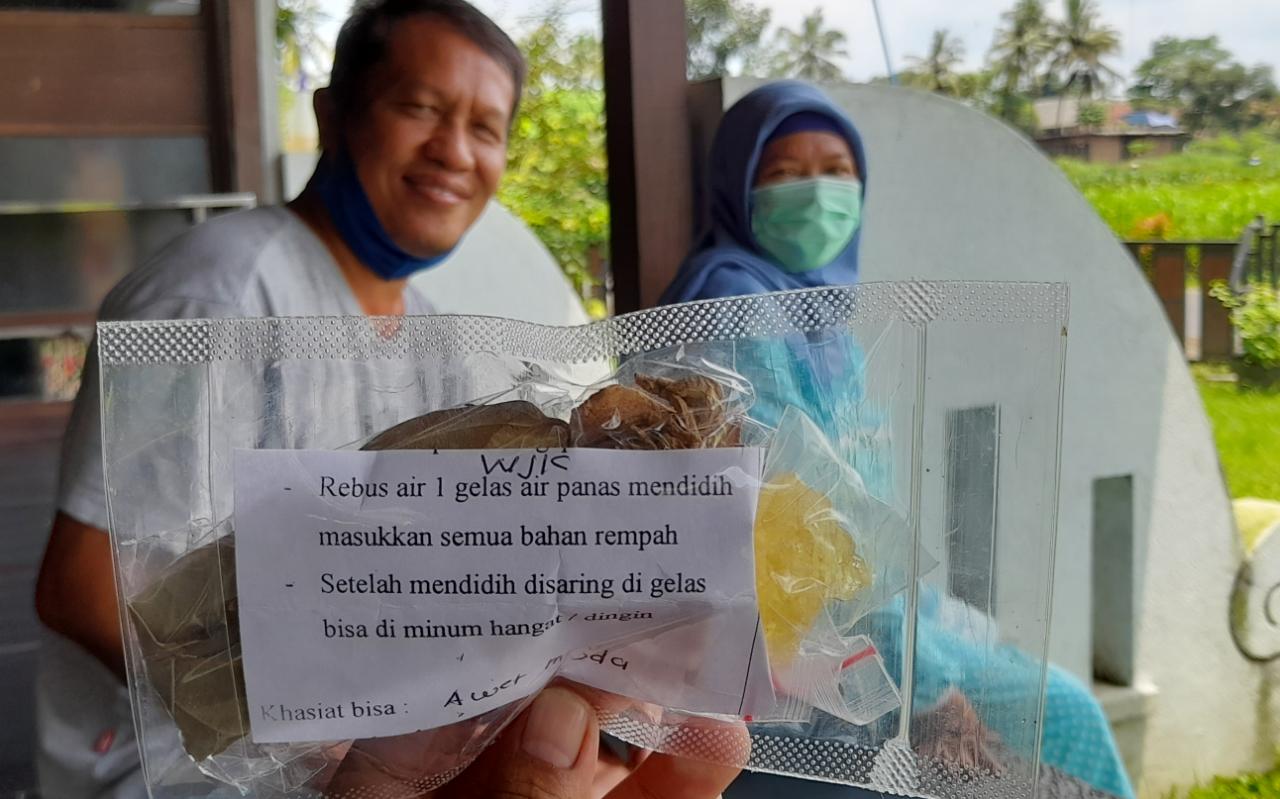 - Rebus air 1 gelas air panas mendidih
masukkan semua bahan rempah
- Setelah mendidih disaring di gelas
bisa di minum hangat / dingin
Khasiat bisa : Awet muda